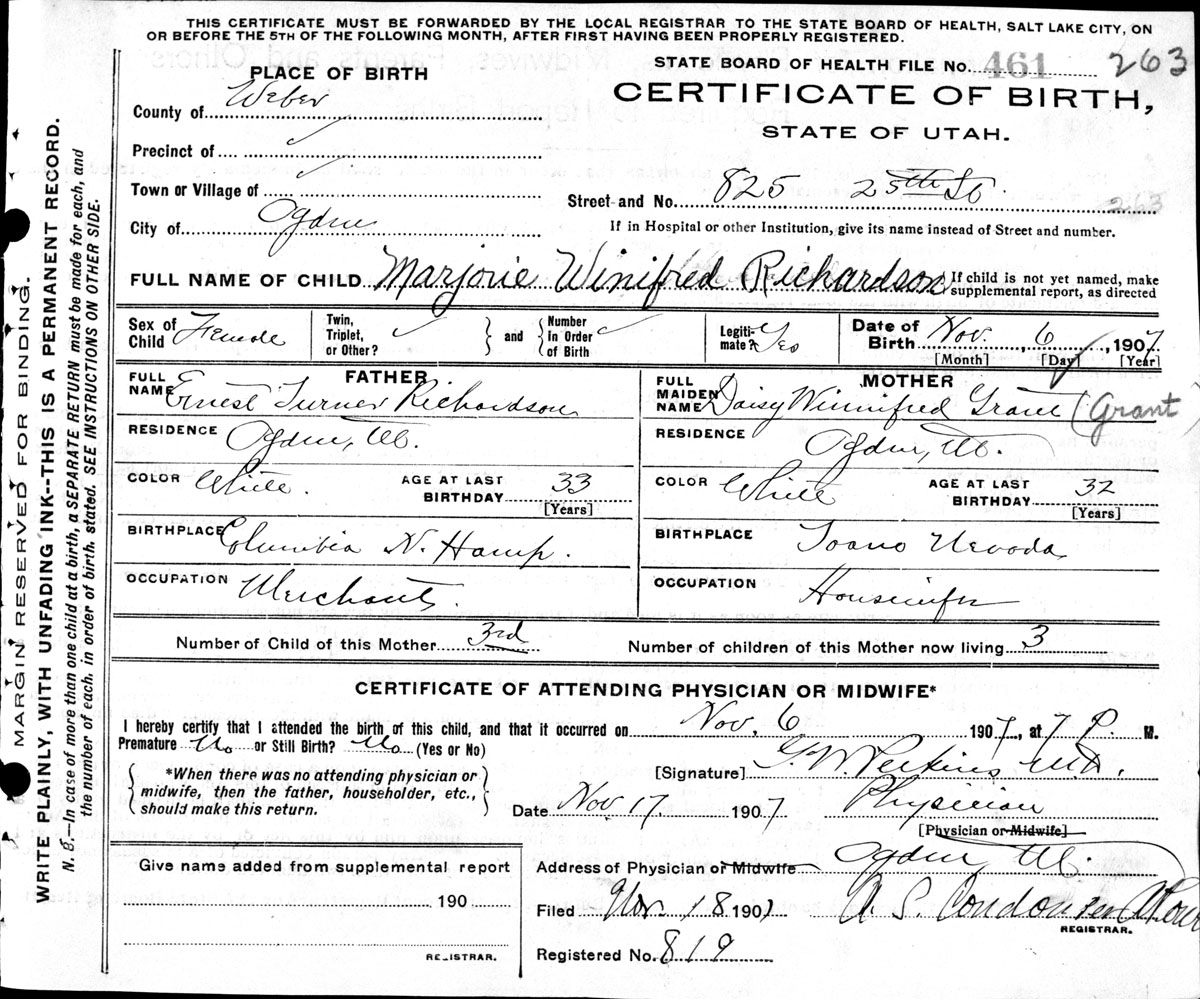 THIS CERTIFICATE MUST BE FORWARDED BY THE LOCAL REGISTRAR TO THE STATE BOARD OF HEALTH, SALT LAKE CITY, ON
OR BEFORE THE 5TH OF THE FOLLOWING MONTH, AFTER FIRST HAVING BEEN PROPERLY REGISTERED.
PLACE OF BIRTH
STATE BOARD OF HEALTH FILE No. 461 263
County of Weber
CERTIFICATE OF BIRTH,
STATE OF UTAH.
Precinct of ✓
Town or Village of ✓
Street and No. 825 25th St. 263
City of Ogden
If in Hospital or other Institution, give its name instead of Street and number.
FULL NAME OF CHILD Marjorie Winifred Richardson
If child is not yet named, make
supplemental report, as directed
Sex of Child Female
Twin, Triplet, or Other? ✓ and Number In Order of Birth ✓
Legitimate? Yes
Date of Birth Nov. 6, 1907
[Month] [Day] [Year]
FATHER
FULL NAME Ernest Turner Richardson
RESIDENCE Ogden, Ut.
COLOR White. AGE AT LAST BIRTHDAY 33
[Years]
BIRTHPLACE Columbia N. Hamp.
OCCUPATION Merchant.
MOTHER
FULL MAIDEN NAME Daisy Winnifred Grant (Grant)
RESIDENCE Ogden, Ut.
COLOR White AGE AT LAST BIRTHDAY 32
[Years]
BIRTHPLACE Toano Nevada
OCCUPATION Housewife
Number of Child of this Mother 3rd Number of children of this Mother now living 3
CERTIFICATE OF ATTENDING PHYSICIAN OR MIDWIFE*
I hereby certify that I attended the birth of this child, and that it occurred on Nov. 6 1907, at 7 P. M.
Premature No or Still Birth? No (Yes or No)
*When there was no attending physician or
midwife, then the father, householder, etc.,
should make this return.
[Signature] Perkins M.D.
Date Nov. 17 1907 Physician
[Physician or Midwife]
Give name added from supplemental report
190
REGISTRAR.
Address of Physician or Midwife Ogden, Ut.
Filed Nov. 18 1907 A. S. Condon
REGISTRAR.
Registered No. 819
MARGIN RESERVED FOR BINDING.
WRITE PLAINLY, WITH UNFADING INK--THIS IS A PERMANENT RECORD.
N. B.--In case of more than one child at a birth, a SEPARATE RETURN must be made for each, and
the number of each, in order of birth, stated. SEE INSTRUCTIONS ON OTHER SIDE.